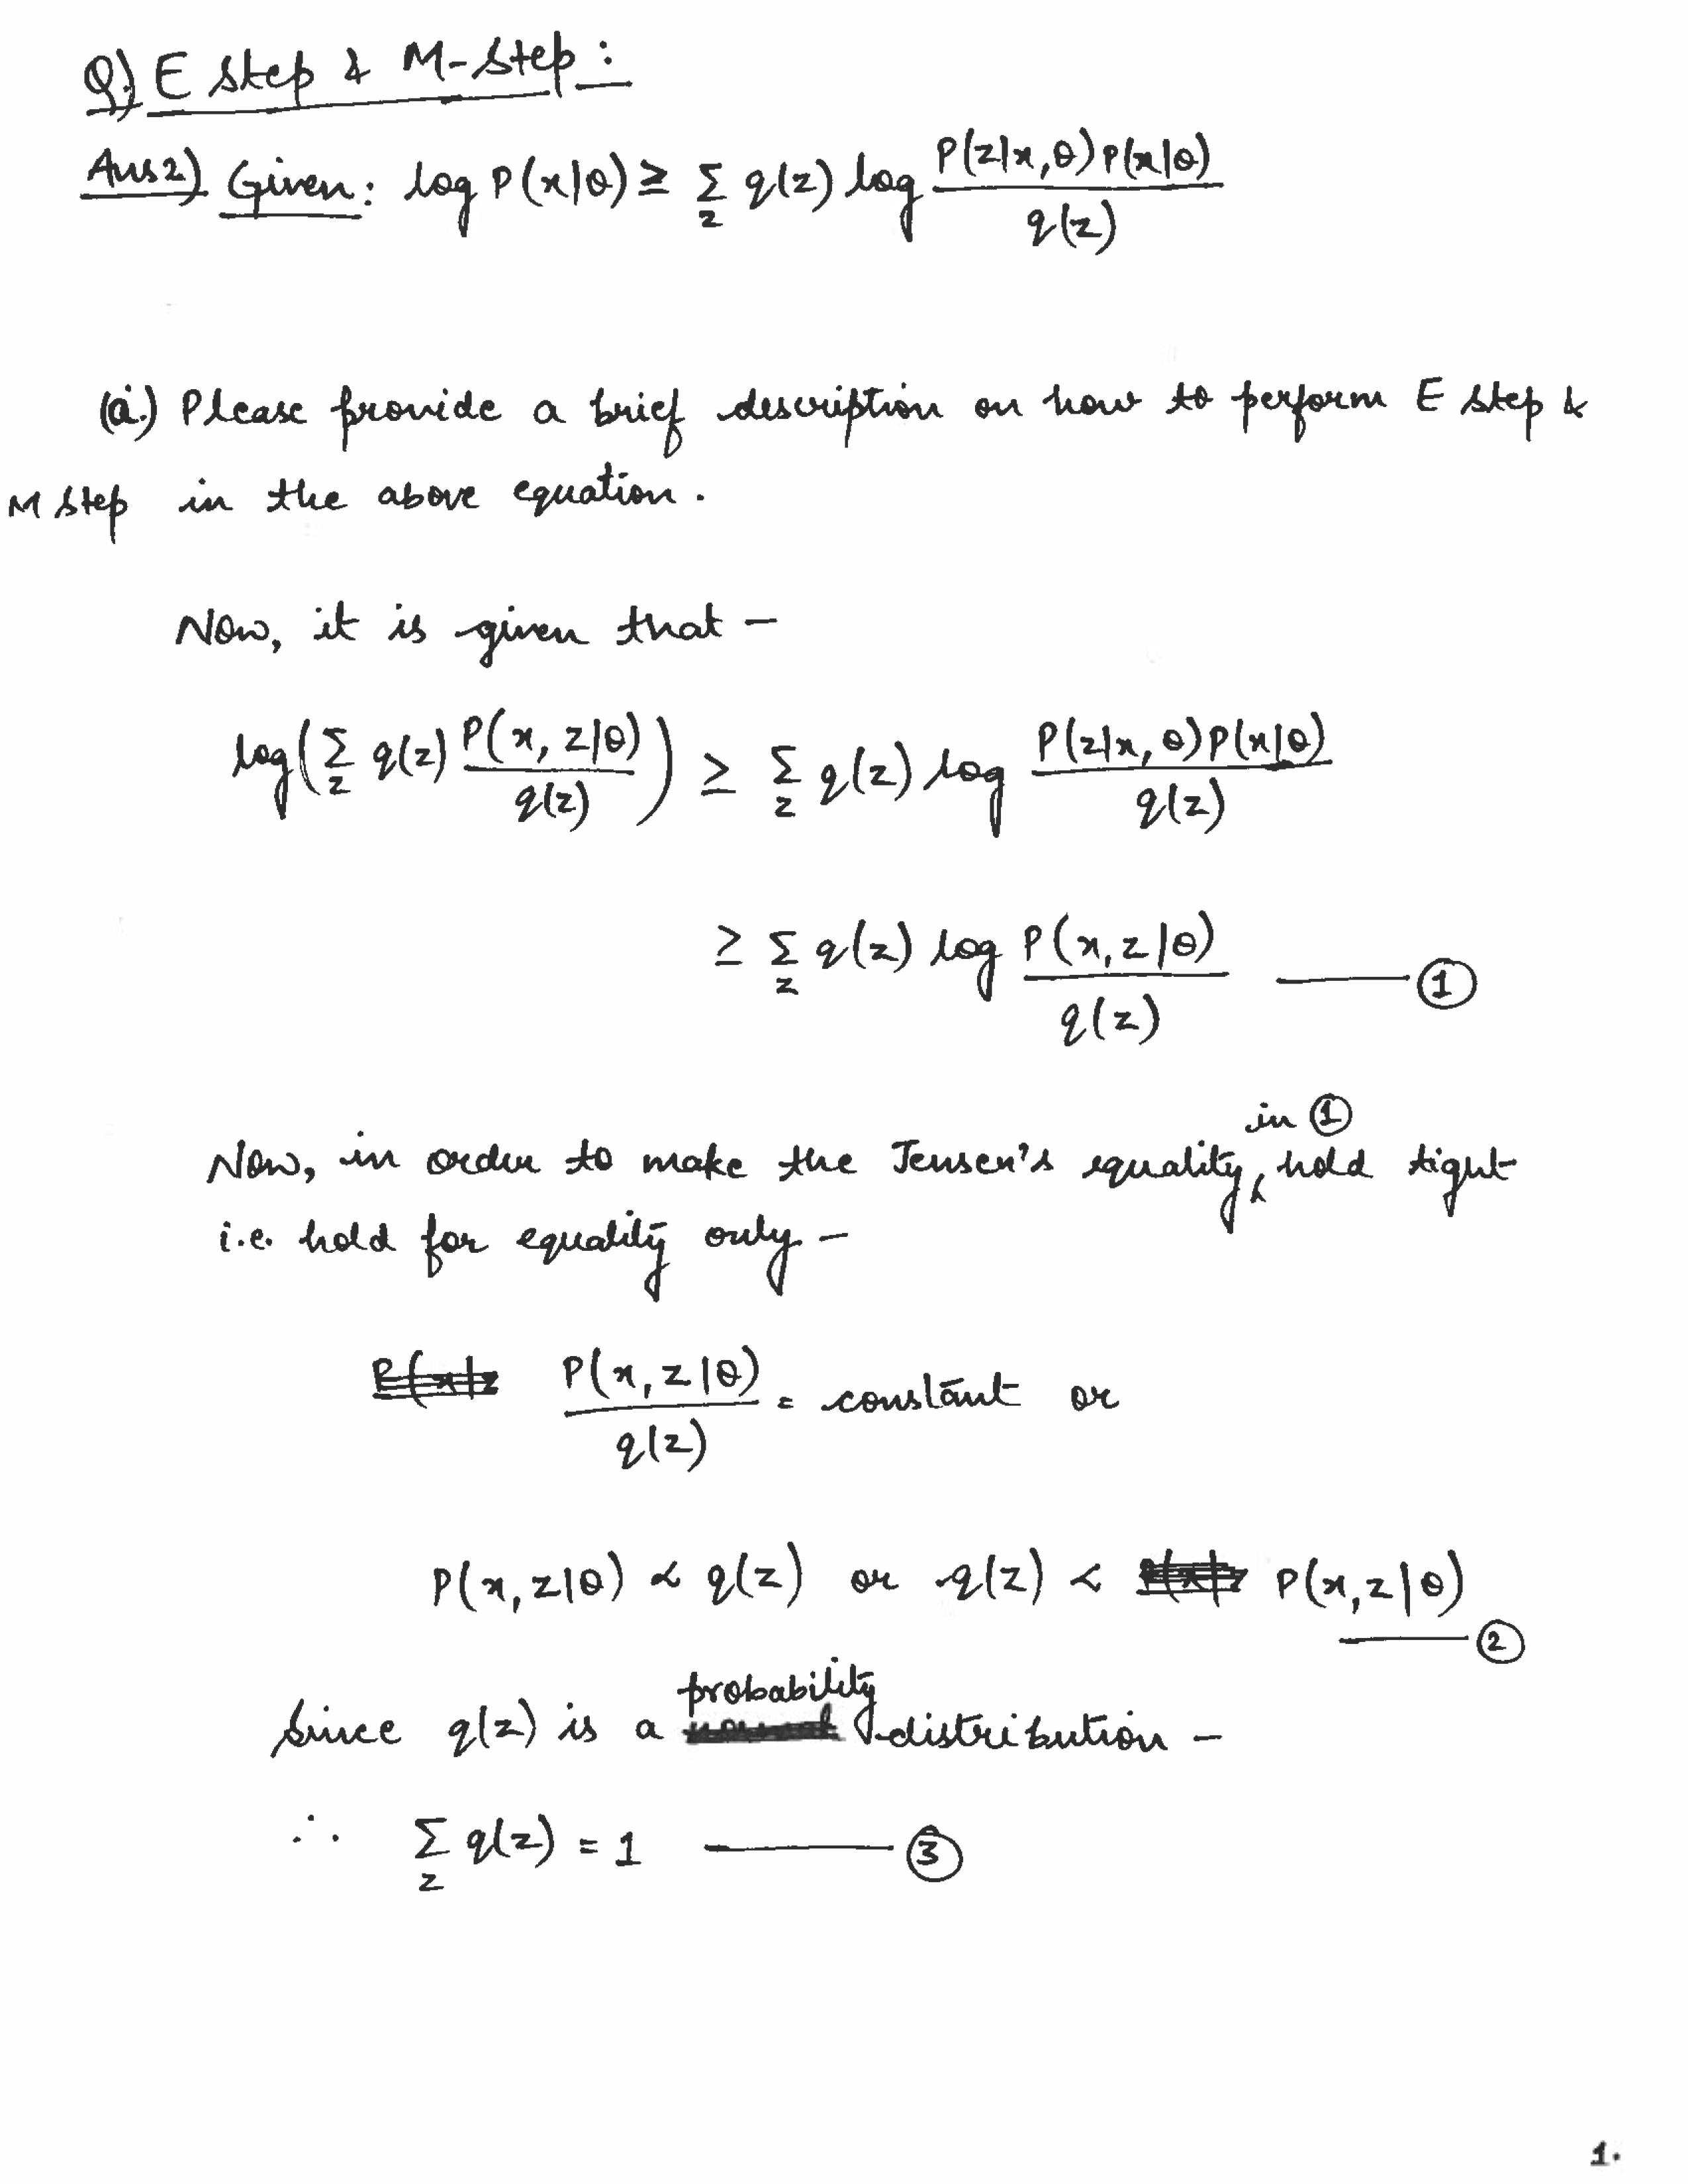 Q.) E Step & M-Step :
Ans 2) Given : log P(x|θ) ≥ Σ_z q(z) log P(z|x,θ) P(x|θ) / q(z)
(a.) Please provide a brief description on how to perform E step &
M step in the above equation.
Now, it is given that –
log( Σ_z q(z) P(x, z|θ) / q(z) ) ≥ Σ_z q(z) log P(z|x, θ) P(x|θ) / q(z)
≥ Σ_z q(z) log P(x, z|θ) / q(z) —— ①
Now, in order to make the Jensen's equality in ① hold tight
i.e. hold for equality only –
P(x, z|θ) / q(z) = constant or
P(x, z|θ) ∝ q(z) or q(z) ∝ P(x, z|θ) —— ②
Since q(z) is a probability distribution –
∴ Σ_z q(z) = 1 —— ③
1.